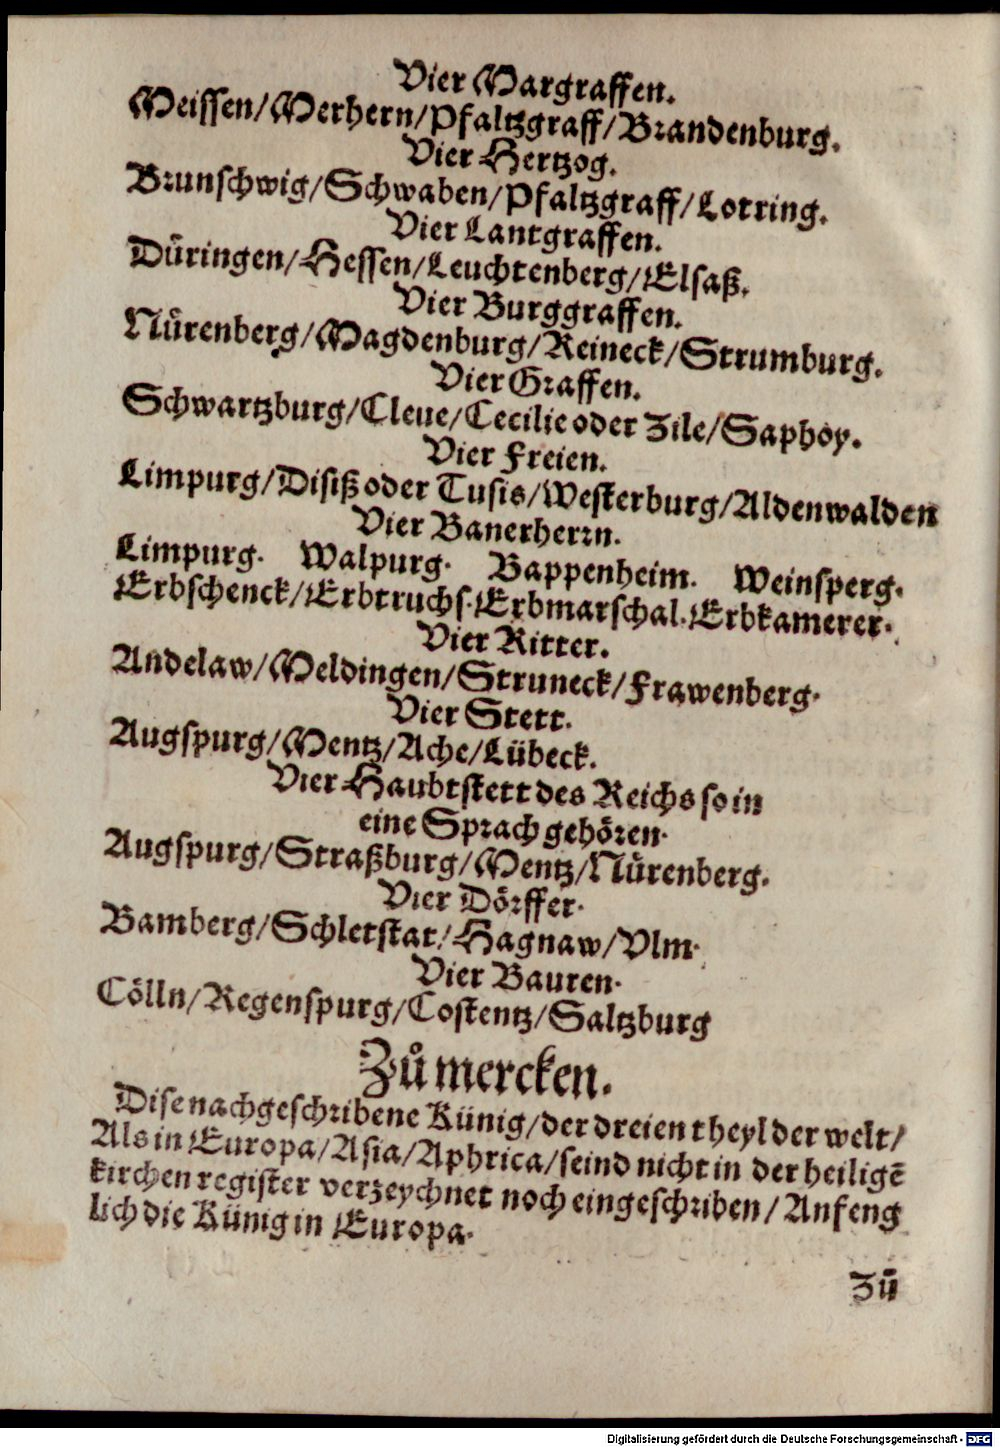 Vier Margraffen.
Meissen/Merhern/Pfaltzgraff/Brandenburg.
Vier Hertzog.
Brunschwig/Schwaben/Pfaltzgraff/Lotring.
Vier Lantgraffen.
Düringen/Hessen/Leuchtenberg/Elsaß.
Vier Burggraffen.
Nürenberg/Magdenburg/Reineck/Strumburg.
Vier Graffen.
Schwartzburg/Cleue/Cecilie oder Zile/Saphoy.
Vier Freien.
Limpurg/Disiß oder Tusis/Westerburg/Aldenwalden
Vier Banerherrn.
Limpurg. Walpurg. Bappenheim. Weinsperg.
Erbschenck/Erbtruchs.Erbmarschal.Erbkamerer.
Vier Ritter.
Andelaw/Meldingen/Struneck/Frawenberg.
Vier Stett.
Augspurg/Mentz/Ache/Lübeck.
Vier Haubtstett des Reichs so in
eine Sprach gehören.
Augspurg/Straßburg/Mentz/Nürenberg.
Vier Dörffer.
Bamberg/Schletstat/Hagnaw/Vlm.
Vier Bauren.
Cölln/Regenspurg/Costentz/Saltzburg
Zů mercken.
Dise nachgeschribene Künig/der dreien theyl der welt/
Als in Europa/Asia/Aphrica/seind nicht in der heiligē
kirchen register verzeychnet noch eingeschriben/Anfeng
lich die Künig in Europa.
Zů
Digitalisierung gefördert durch die Deutsche Forschungsgemeinschaft - DFG